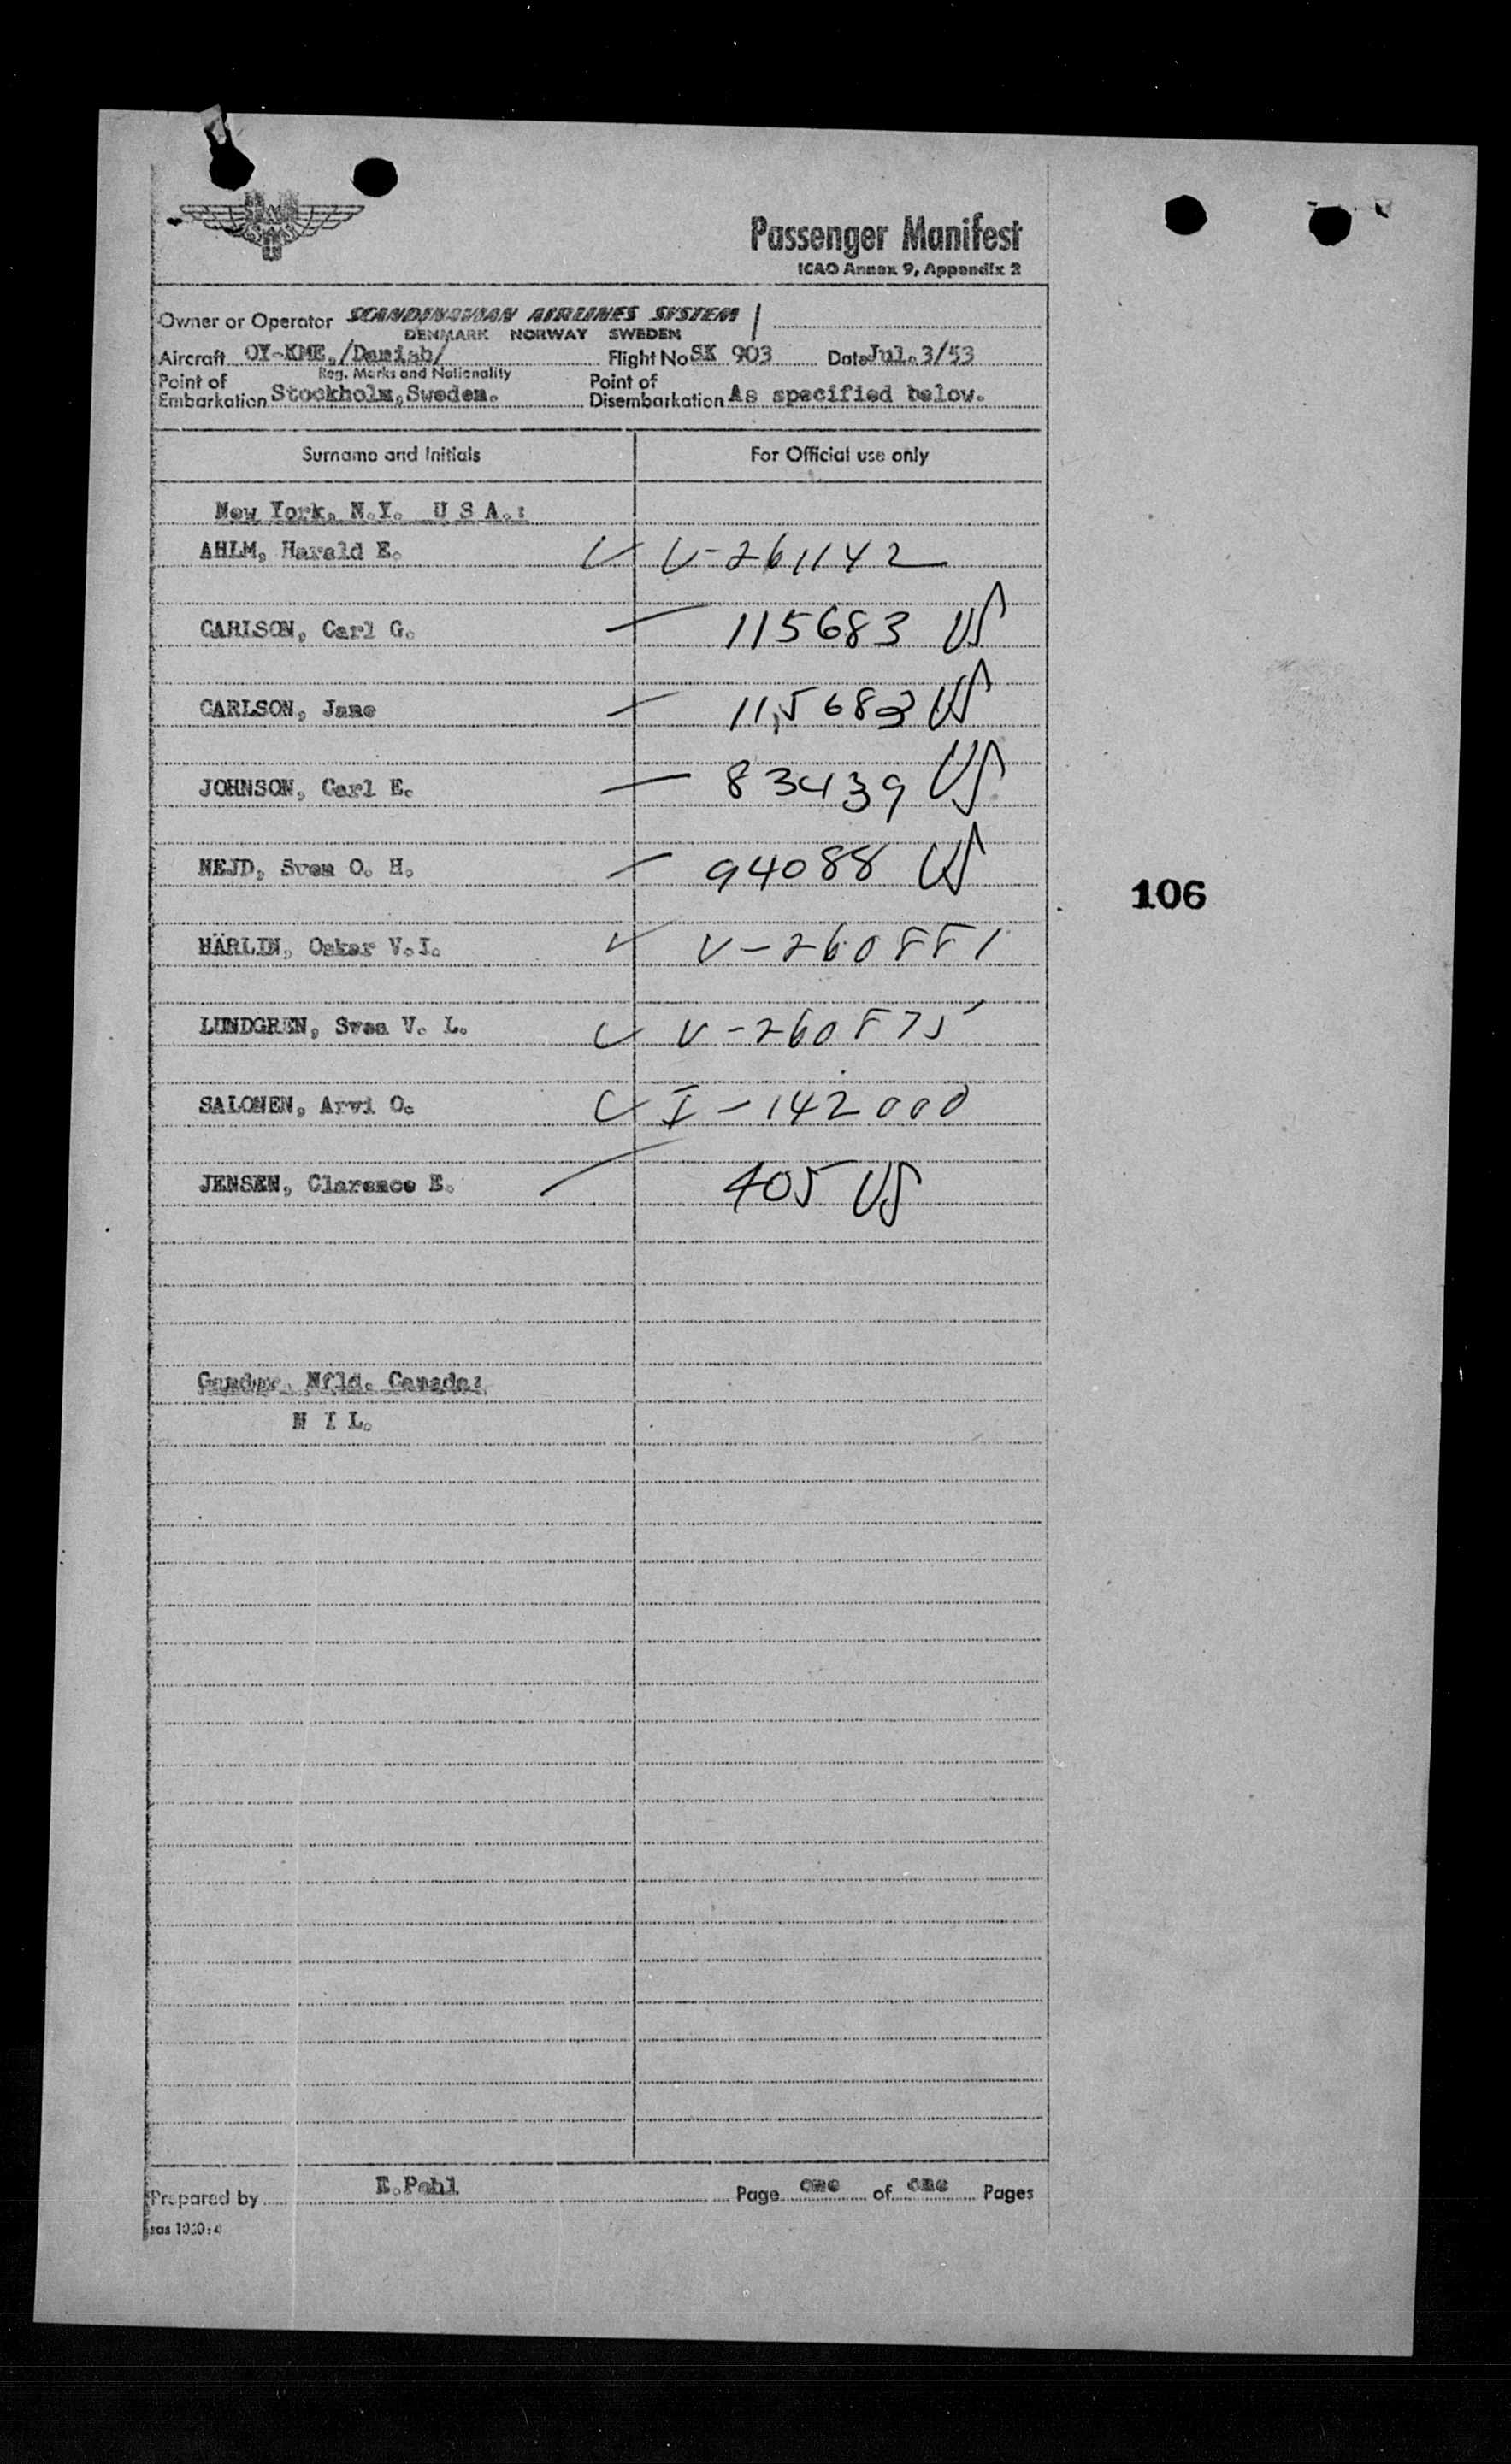 Passenger Manifest
ICAO Annex 9, Appendix 2
Owner or Operator SCANDINAVIAN AIRLINES SYSTEM
DENMARK NORWAY SWEDEN
Aircraft OY-KME./Daniab/ Flight No SK 903 Date Jul.3/53
Reg. Marks and Nationality
Point of Embarkation Stockholm, Sweden. Point of Disembarkation As specified below.
Surname and Initials For Official use only
New York, N.Y. U S A.:
AHLM, Harald E. V-261142
CARLSON, Carl G. 115683 US
CARLSON, Jane 115683 US
JOHNSON, Carl E. 83439 US
NEJD, Sven O. H. 94088 US
HÄRLIN, Oskar V.I. V-260881
LUNDGREN, Sven V. L. V-260875
SALONEN, Arvi O. I-142000
JENSEN, Clarence E. 405 US
Gander, Nfld. Canada:
N I L.
106
Prepared by E.Pahl Page one of one Pages
sas 1020:4